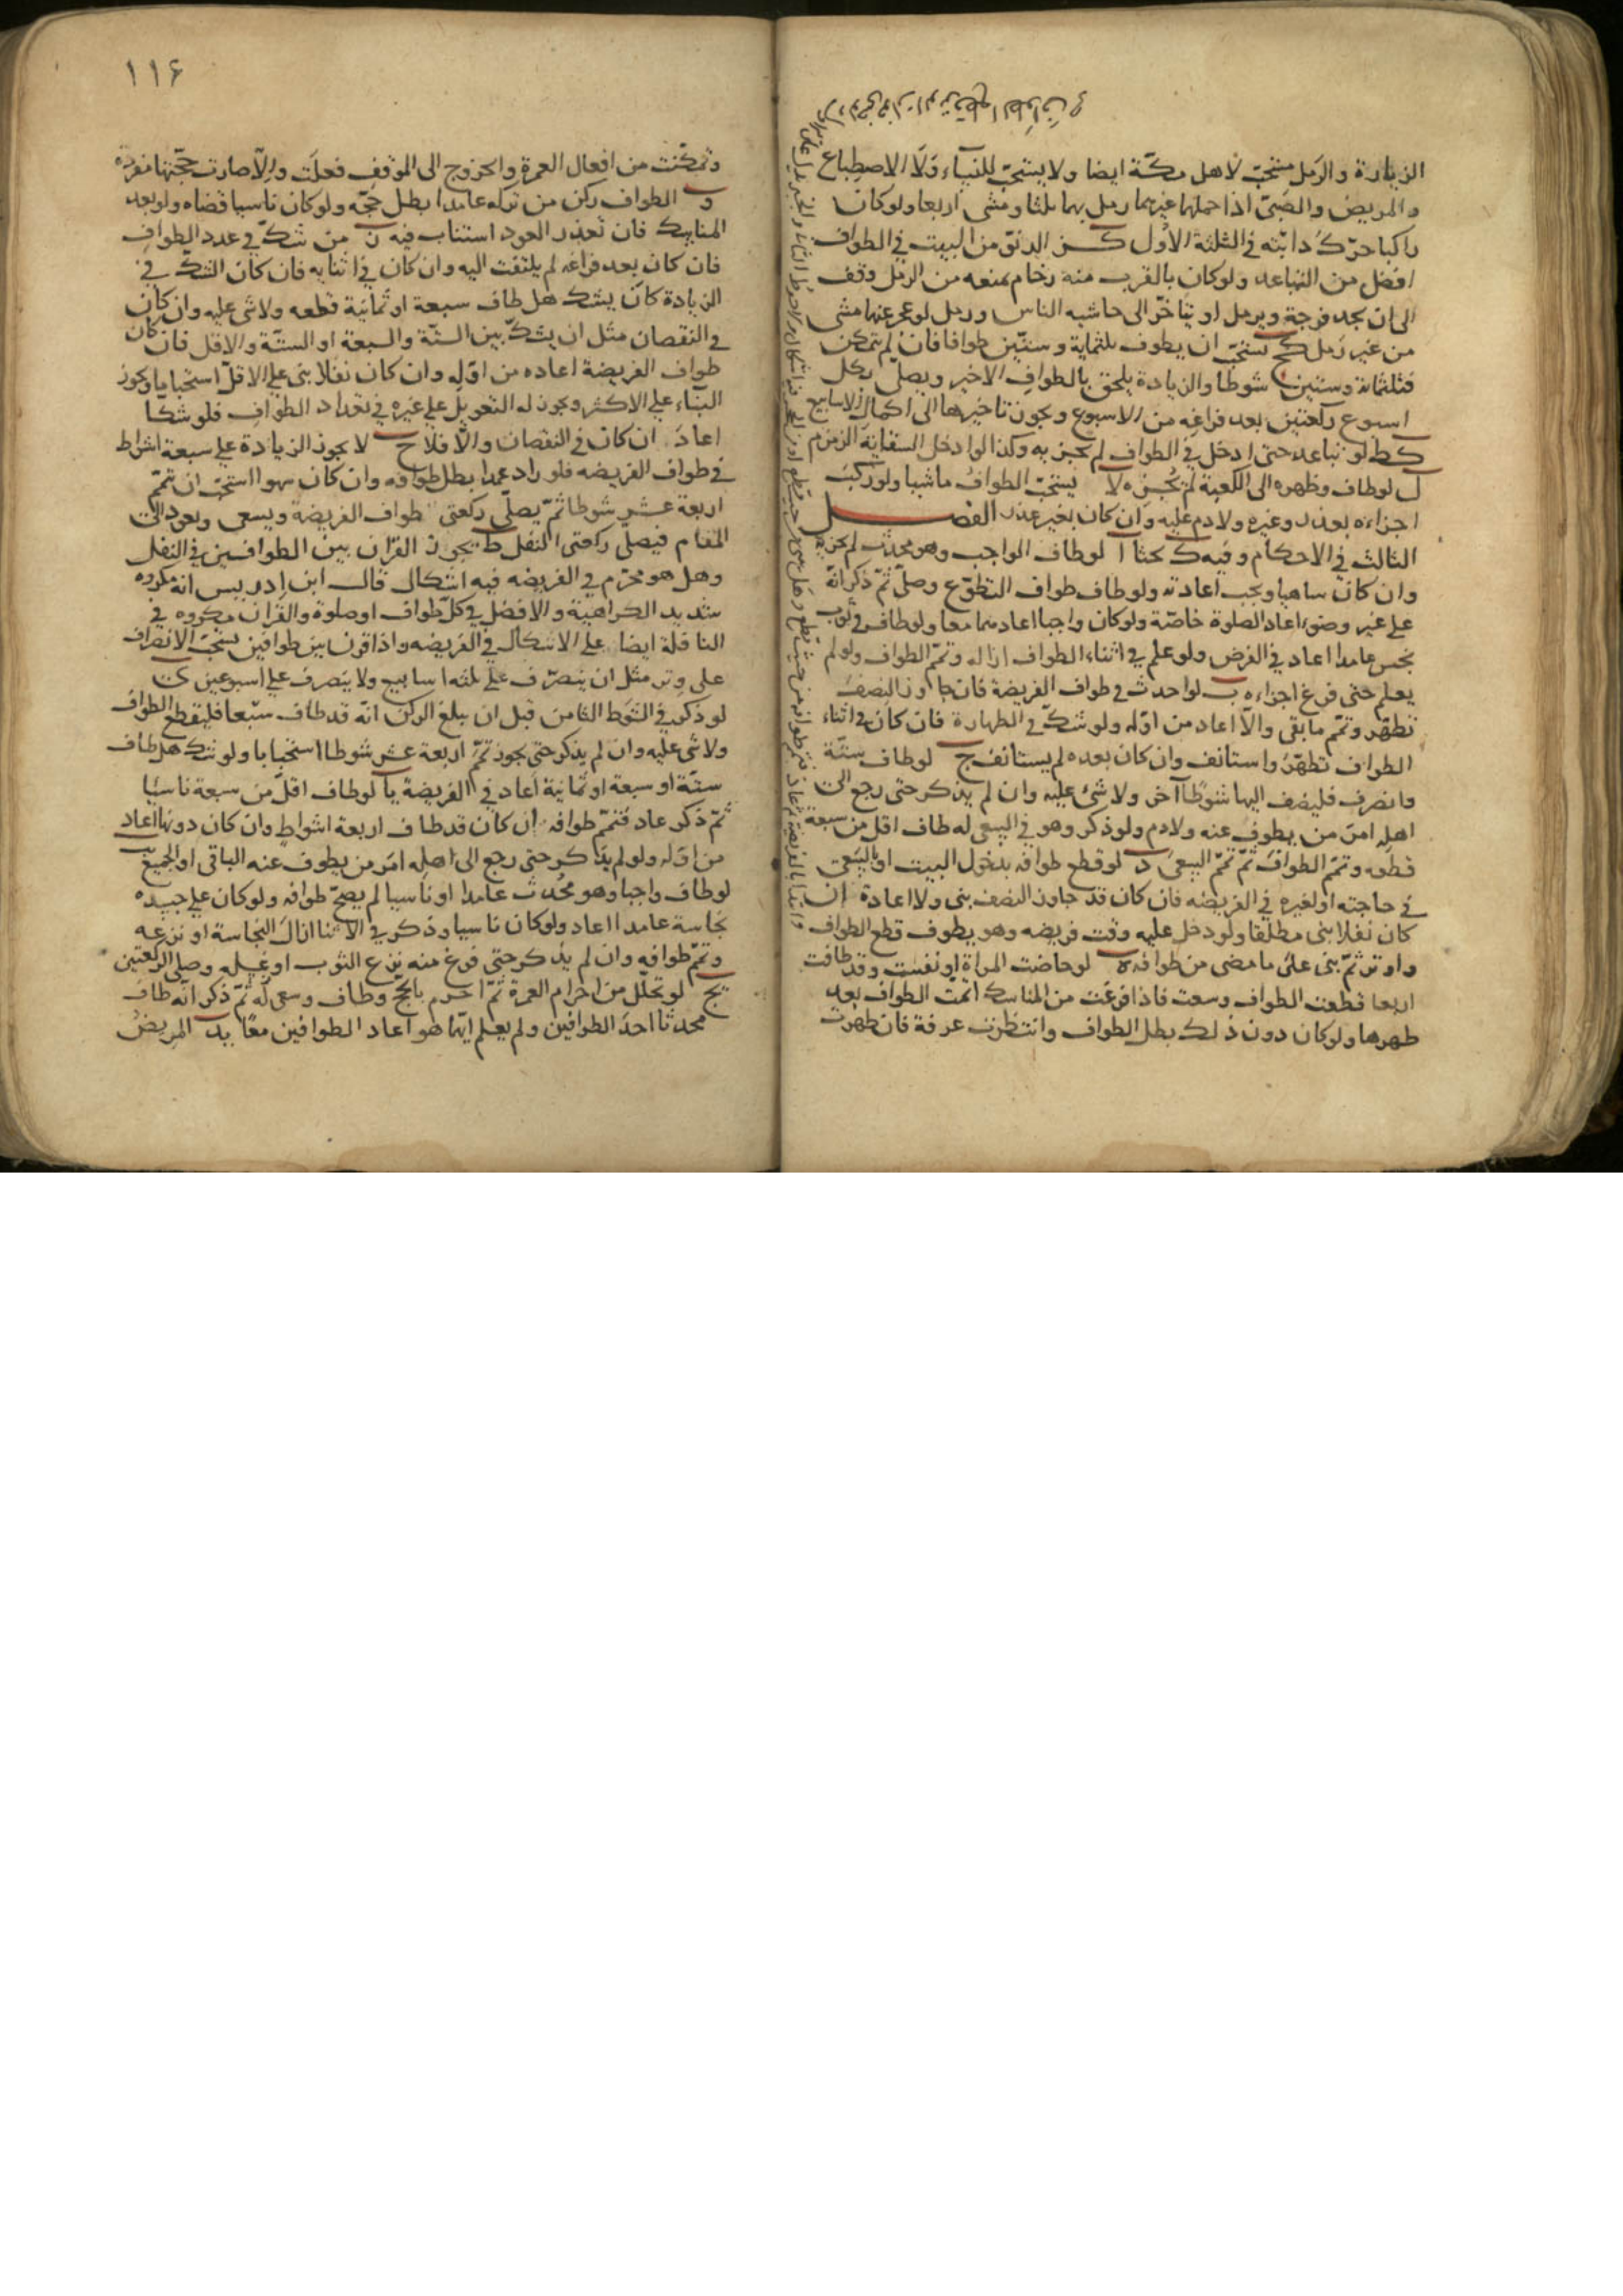 الزيارة والرمل مستحبّ لاهل مكّة ايضا ولا يستحبّ للنساء ولا الاصطباع
والمريض والصبيّ اذا حملهما غيرهما رمل بهما ثلثا ومشى اربعا ولو كان
راكبا حرّك دابّته في الثلثة الاول كز الدنوّ من البيت في الطواف
افضل من التباعد ولو كان بالقرب منه زحام يمنعه من الرمل وقف
الى ان يجد فرجة ويرمل او يتاخّر الى حاشيه الناس ورمل لو عجز عنها مشى
من غير رمل كح يستحبّ ان يطوف بثلثماية وستّين طوافا فان لم يتمكن
فثلثماية وستين شوطا والزيادة يلحق بالطواف الاخير ويصلّي بكل
اسبوع ركعتين بعد فراغه من الاسبوع ويجوز تاخيرها الى اكمال الاسابيع
كط لو تباعد حتى ادخل في الطواف لم يجز به وكذا لو ادخل السقاية الزمزم
ل لو طاف وظهره الى الكعبة لم يجزه لا يستحبّ الطواف ماشيا ولو ركب
اجزاءه بعذر وغيره ولا دم عليه وان كان بغير عذر الفصل
الثالث في الاحكام وفيه ك بحثا ا لو طاف الواجب وهو محدث لم يجزه
وان كان ساهيا ويجب اعادته ولو طاف طواف التطوّع وصلّى ثمّ ذكر انّه
على غير وضوء اعاد الصلوة خاصّة ولو كان واجبا اعادهما معا ولو طاف في ثوب
نجس عامدا اعاد في الفرض ولو علم في اثناء الطواف ازاله وتمّم الطواف ولو لم
يعلم حتى فرغ اجزاءه ب لو احدث في طواف الفريضة فان جاوز النصف
تطهّر وتمّم ما بقى والّا اعاد من اوّله ولو شكّ في الطهارة فان كان في اثناء
الطواف تطهّر واستانف وان كان بعده لم يستانف ج لو طاف ستّة
وانصرف فليضف اليها شوطا آخر ولا شئ عليه وان لم يذكر حتى رجع الى
اهله امر من يطوف عنه ولا دم ولو ذكر وهو في السعي انه طاف اقل من سبعة
قطعه وتمّم الطواف ثمّ تمّم السعي د لو قطع طوافه بدخول البيت او بالسّعي
في حاجته او لغيره في الفريضه فان كان قد جاوز النصف بنى ولا اعادة ان
كان نفلا بنى مطلقا ولو دخل عليه وقت فريضه وهو يطوف قطع الطواف
واوتر ثمّ بنى على ما مضى من طوافه ه لو حاضت المراة او نفست وقد طافت
اربعا قطعت الطواف وسعت فاذا فرغت من المناسك اتمّت الطواف بعد
طهرها ولو كان دون ذلك بطل الطواف وانتظرت عرفة فان طهرت
١١٤
وتمكّنت من افعال العمرة والخروج الى الموقف فعلت والّا صارت حجّتها مفردة
و الطواف ركن من تركه عامدا بطل حجّه ولو كان ناسيا قضاه ولو بعد
المناسك فان تعذر العود استناب فيه ز من شكّ في عدد الطواف
فان كان بعد فراغه لم يلتفت اليه وان كان في اثنايه فان كان الشكّ في
الزيادة كان يشك هل طاف سبعة او ثمانية قطعه ولا شى عليه وان كان
في النقصان مثل ان يشكّ بين الستّة والسبعة او الستّة والاقل فان كان
طواف الفريضة اعاده من اوّله وان كان نفلا بنى على الاقلّ استحبابا ويجوز
البناء على الاكثر ويجوز له التعويل على غيره في تعداد الطواف فلو شكا
اعاد ان كان في النقصان والّا فلا ح لا يجوز الزيادة على سبعة اشواط
في طواف الفريضه فلو زاد عمدا بطل طوافه وان كان سهوا استحبّ ان يتمّم
اربعة عشر شوطا ثمّ يصلّي ركعتى طواف الفريضة ويسعى ويعود الى
المقام فيصلّي ركعتى النفل ط يجوز القران بين الطوافين في النفل
وهل هو محرّم في الفريضه فيه اشكال قال ابن ادريس انه مكروه
شديد الكراهية والافضل في كلّ طواف او صلوة والقران مكروه في
النافلة ايضا على الاشكال في الفريضه واذا قرن بين طوافين يستحبّ الانصراف
على وتر مثل ان ينصرف على ثلثه اسابيع ولا ينصرف على اسبوعين ى
لو ذكر في الشوط الثامن قبل ان يبلغ الركن انّه قد طاف سبعا فليقطع الطواف
ولا شى عليه وان لم يذكر حتى يجوز تمّم اربعة عشر شوطا استحبابا ولو شك هل طاف
ستّة او سبعة او ثمانية اعاد في الفريضة يا لو طاف اقلّ من سبعة ناسيا
ثمّ ذكر عاد فتمّم طوافه ان كان قد طاف اربعة اشواط وان كان دونها اعاد
من اوّله ولو لم يذكر حتى رجع الى اهله امر من يطوف عنه الباقى او الجميع يب
لو طاف واجبا وهو محدث عامدا او ناسيا لم يصحّ طوافه ولو كان على جسده
نجاسة عامدا اعاد ولو كان ناسيا وذكر في الاثنا ازال النجاسة او نزعه
وتمّم طوافه وان لم يذكر حتى فرغ منه نزع الثوب او غسله وصلى الركعتين
يج لو تحلّل من احرام العمرة ثمّ احرم بالحجّ وطاف وسعى له ثمّ ذكر انّه طاف
محدثا احد الطوافين ولم يعلم ايّهما هو اعاد الطوافين معا يد المريض